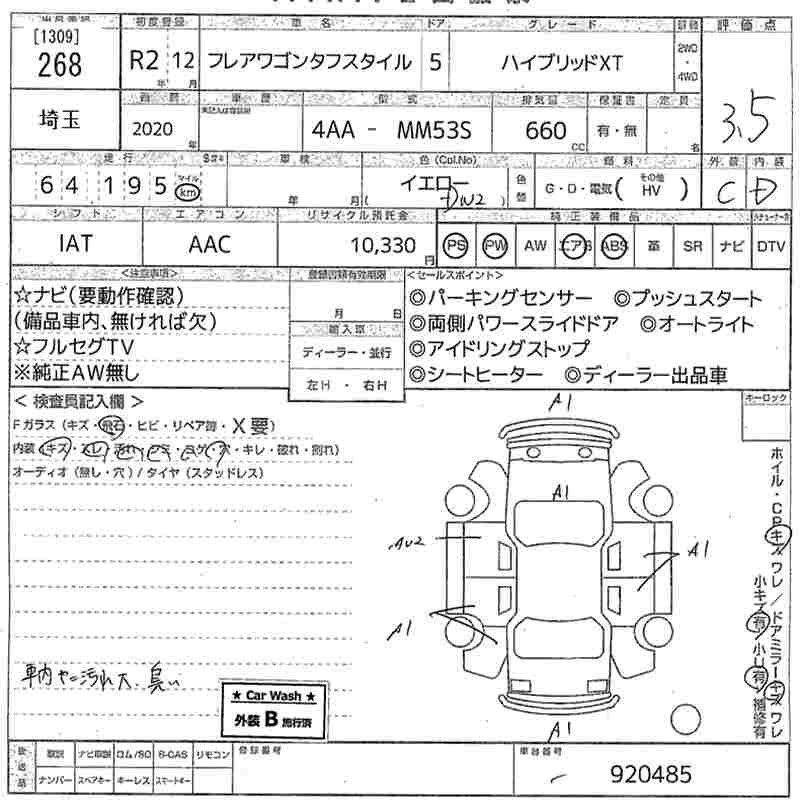 [1309]
268
初度登録
車名
ドア
グレード
評価点
R2 12
年 月
フレアワゴンタフスタイル
5
ハイブリッドXT
2WD
・
4WD
埼玉
2020
年
車歴
型式
4AA - MM53S
排気量
660
CC
保証書
有・無
定員
名
3.5
走行
64195
マイル
km
車検
年 月
色(Col.No)
イエロー
色替
燃料
G・D・電気( その他 HV )
外装 内装
C D
シフト
IAT
エアコン
AAC
リサイクル預託金
10,330
円
純正装備品
PS PW AW エアB ABS 革 SR ナビ DTV
<注意事項>
☆ナビ(要動作確認)
(備品車内、無ければ欠)
☆フルセグTV
※純正AW無し
登録書類有効期限
月 日
輸入車
ディーラー・並行
左H ・ 右H
<セールスポイント>
◎パーキングセンサー ◎プッシュスタート
◎両側パワースライドドア ◎オートライト
◎アイドリングストップ
◎シートヒーター ◎ディーラー出品車
キーロック
< 検査員記入欄 >
Fガラス (キズ・飛石・ヒビ・リペア跡・X要)
内装 (キズ・スレ・汚れ・シミ・コゲ・穴・キレ・破れ・割れ)
オーディオ (無し・穴) / タイヤ (スタッドレス)
A1
A1
AU2
A1
A1
A1
ホイル・CPキズワレ / ドアミラーキズワレ
小キズ有 / 小U有 / 補修有
車内ヤニ汚れ大、臭い
★ Car Wash ★
外装 B 施行済
後送品
取説 ナビ取説 ロム/SD B-CAS リモコン
ナンバー スペアキー キーレス スマートキー
登録番号
車台番号
920485